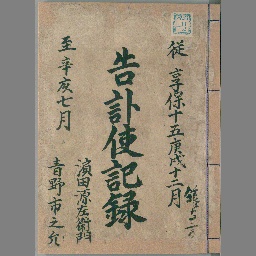 従 享保十五庚戌十二月
告訃使記録
至 辛亥七月
濱田源左衛門
吉野市之允